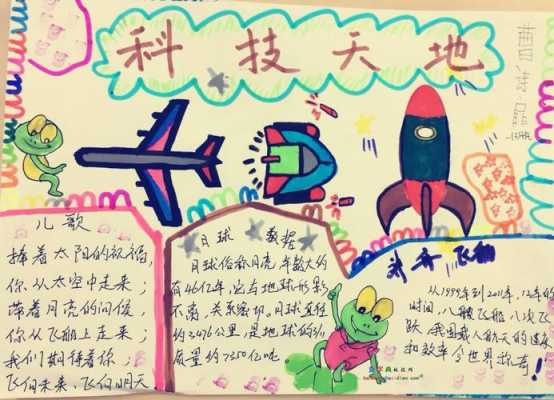 科技天地
儿歌
捧着太阳的祝福,
你从太空中走来;
带着月亮的问候,
你从飞船上走来;
我们期待着你;
飞向未来、飞向明天
月球 数据
月球俗称月亮,年龄大约
有46亿年,它与地球形影
不离,关系密切,月球直径
约3476公里,是地球的3/11
质量约7350亿吨
飞船
从1999年到2011年,12年的
时间,八艘飞船、八次飞
跃,我国载人航天的速度
和效率令世界称奇!